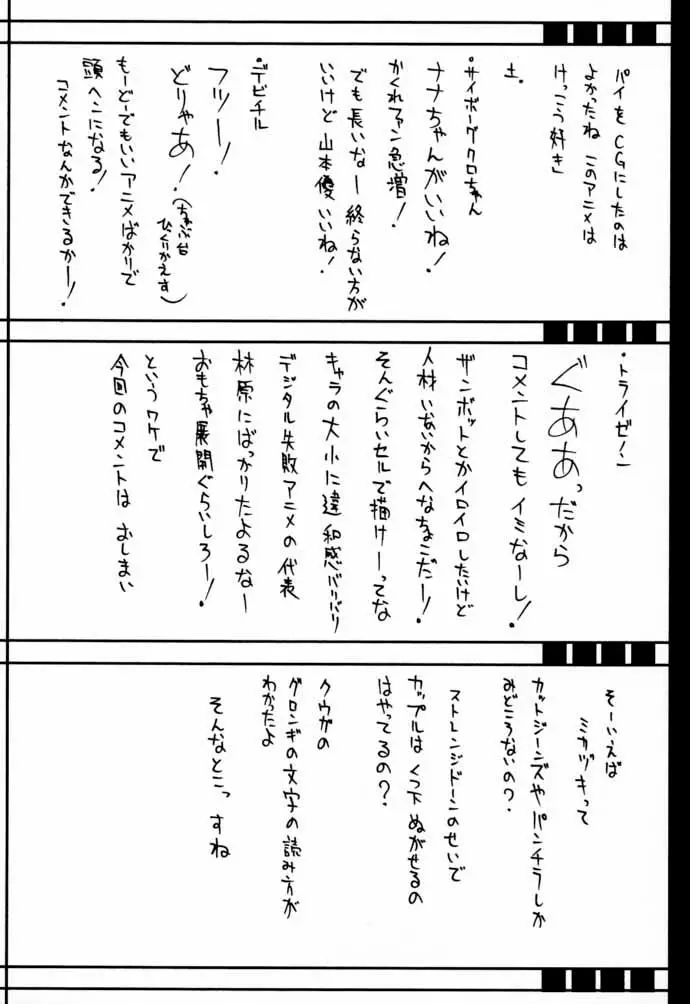 パイをCGにしたのは
よかったね このアニメは
けっこう好き」
土。
・サイボーグクロちゃん
ナナちゃんがいいね!
かくれファン急増!
でも長いなー 終らない方が
いいけど 山本優 いいね!
・デビチル
フツー!
どりゃあ!(ちゃぶ台
ひっくりかえす)
もーどーでもいいアニメばかりで
頭ヘンになる!
コメントなんかできるかー!
・トライゼノン
ぐああっだから
コメントしてもイミなーし!
ザンボットとかイロイロしたいけど
人材いないからへなちょこだー!
そんぐらいセルで描けーってな
キャラの大小に違和感バリバリ
デジタル失敗アニメの代表
林原にばっかりたよるなー
おもちゃ展開ぐらいしろー!
というワケで
今回のコメントは おしまい
そーいえば
ミカヅキって
カットジーンズや パンチラしか
みどころないの?
ストレンジドーンのせいで
カップルは くつ下 ぬがせるの
はやってるの?
クウガの
グロンギの文字の読み方が
わかったよ
そんなとこっ すね